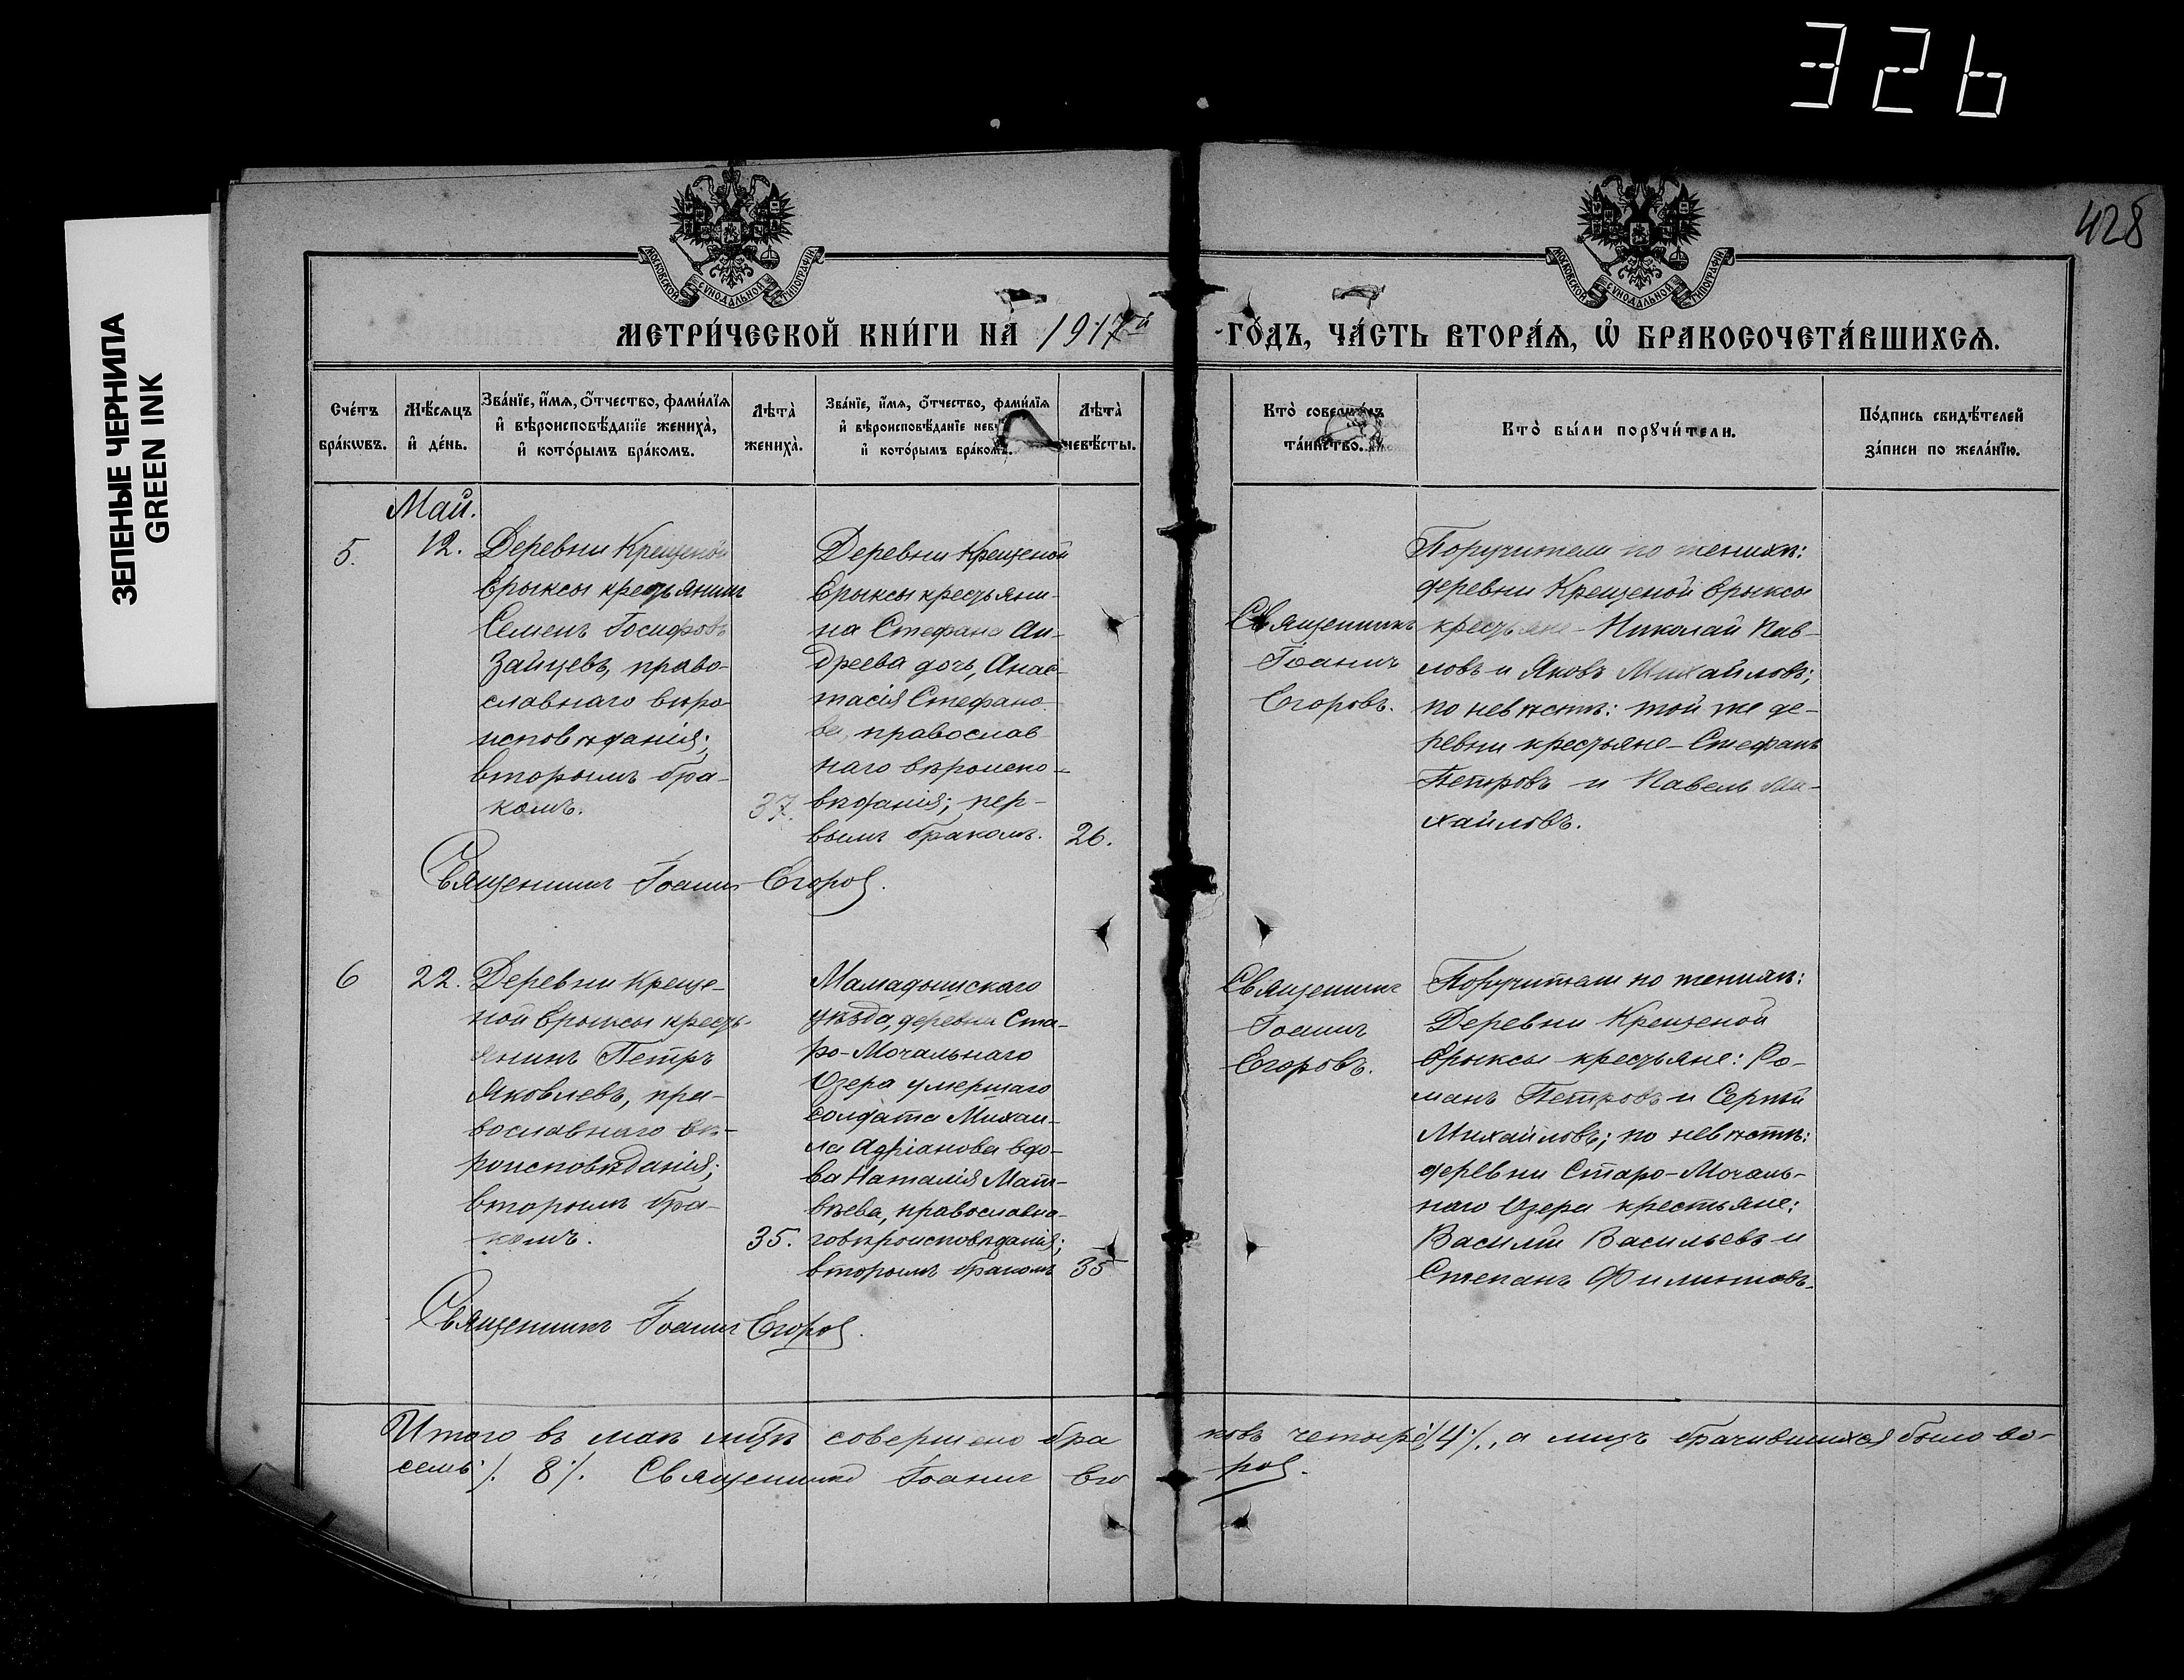 326
428
ЗЕЛЕНЫЕ ЧЕРНИЛА
GREEN INK
МОСКОВСКОЙ СУНОДАЛЬНОЙ ТИПОГРАФІИ
МОСКОВСКОЙ СУНОДАЛЬНОЙ ТИПОГРАФІИ
МЕТРИ́ЧЕСКОЙ КНИ́ГИ НА 1917й
ГО́ДЪ, ЧА́СТЬ ВТОРА́Ѧ, Ѽ БРАКОСОЧЕТА́ВШИХСѦ.
Сче́тъ
бра́кѡвъ.
Мѣ́сѧцъ
и҆ де́нь.
Зва́нїе, и҆́мѧ, ѻ҆́тчество, фами́лїѧ
и҆ вѣроисповѣ́данїе жениха̀,
и҆ кото́рымъ бра́комъ.
Лѣта̀
жениха̀.
Зва́нїе, и҆́мѧ, ѻ҆́тчество, фами́лїѧ
и҆ вѣроисповѣ́данїе невѣ
и҆ кото́рымъ бра́комъ.
Лѣта̀
невѣ́сты.
Кто̀ соверша́лъ
та́инство.
Кто̀ бы́ли порꙋчи́тели.
По́дпись свидѣ́телей
за́писи по жела́нїю.
Май.
5.
12.
Деревни Крещеной
Ерыксы крестьянинъ
Семенъ Іосифовъ
Зайцевъ, право-
славнаго вѣро
исповѣданія;
вторымъ бра-
комъ.
37.
Деревни Крещеной
Ерыксы крестьяни-
на Стефана Ан-
дреева дочь, Анас-
тасія Стефано-
ва, православ
наго вѣроиспо-
вѣданія; пер-
вымъ бракомъ.
26.
Священникъ
Іоаннъ
Егоровъ.
Поручители по женихѣ:
деревни Крещеной Ерыксы
крестьяне - Николай Пав-
ловъ и Яковъ Михайловъ;
по невѣстѣ: той же де-
ревни крестьяне - Стефанъ
Петровъ и Павелъ Ми-
хайловъ.
Священникъ Іоаннъ Егоров.
6
22.
Деревни Креще-
ной Ерыксы кресть-
янинъ Петръ
Яковлевъ, пра-
вославнаго вѣ-
роисповѣданія;
вторымъ бра-
комъ.
35.
Мамадышскаго
уѣзда, деревни Ста-
ро-Мочальнаго
Озера умершаго
солдата Михаи-
ла Адріанова вдо-
ва Наталія Мат-
вѣева, православна-
го вѣроисповѣданія;
вторымъ бракомъ
35
Священникъ
Іоаннъ
Егоровъ.
Поручители по женихѣ:
Деревни Крещеной
Ерыксы крестьяне: Ро-
манъ Петровъ и Сергѣй
Михайловъ; по невѣстѣ:
деревни Старо-Мочаль-
наго Озера крестьяне:
Василій Васильевъ и
Степанъ Филиповъ.
Священникъ Іоаннъ Егоров.
Итого въ маѣ мцѣ совершено бра
ковъ четыре ./.4./., а лицъ брачившихся было во-
семь ./. 8 ./. Священникъ Іоаннъ Его
ров.